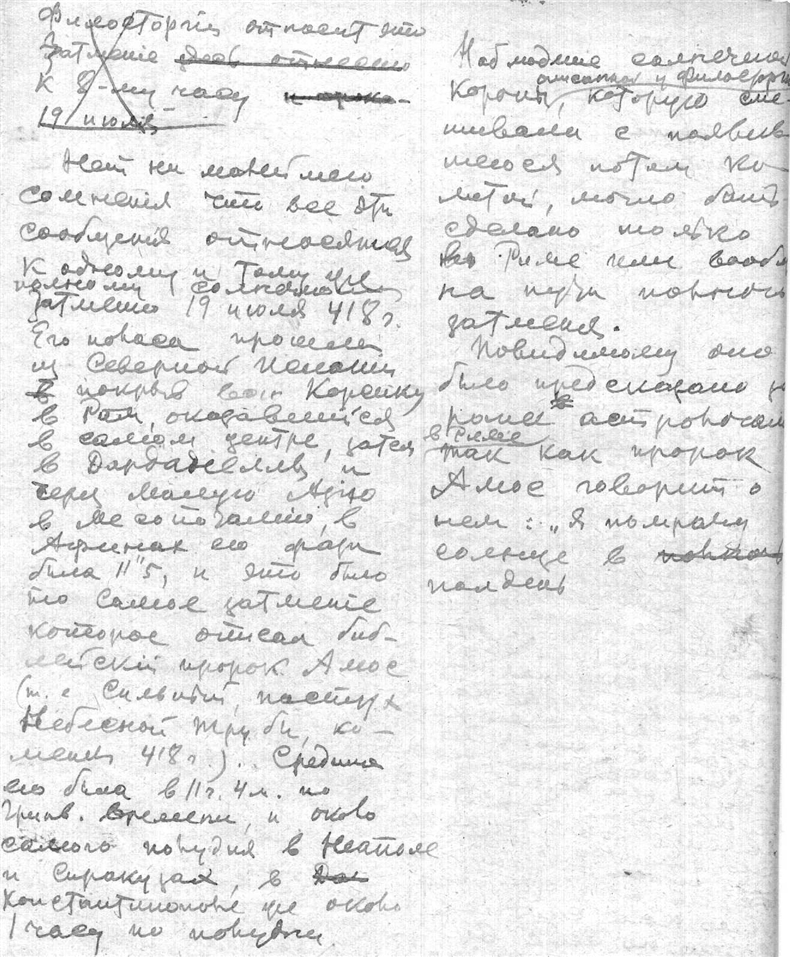 Филосторгий относит это
затмение здесь отнесено
к 8-му часу
19 июля
Нет ни малейшего
сомнения что все эти
сообщения относятся
к одному и тому же
полному солнечному
затмению 19 июля 418 г.
Его полоса прошла
из Северной Испании
в покрыв всю Корсику
в Рим, оказавшийся
в самом центре, затем
в Дарданеллы, и
через Малую Азию
в Месопотамию, в
Афинах его фаза
была 11"5, и это было
то самое затмение
которое описал биб-
лейский пророк Амос
(т. е. Сильный, пастух
Небесной трубы, ко-
меты 418 г.). Средина
его была в 11 ч. 4 м. по
Гринв. времени, и около
самого полудня в Неаполе
и Сиракузах, в
Константинополе уже около
1 часу по полудни.
Наблюдение солнечной
описанной у Филосторгия
короны, которую сме-
шивали с появив
шегося потом ко-
метой, могло быть
сделано только
в Риме или вообще
на пути полного
затмения.
Повидимому оно
было предсказано
астрономами
в Риме
так как пророк
Амос говорит о
нем: „Я помрачу
солнце в
полдень